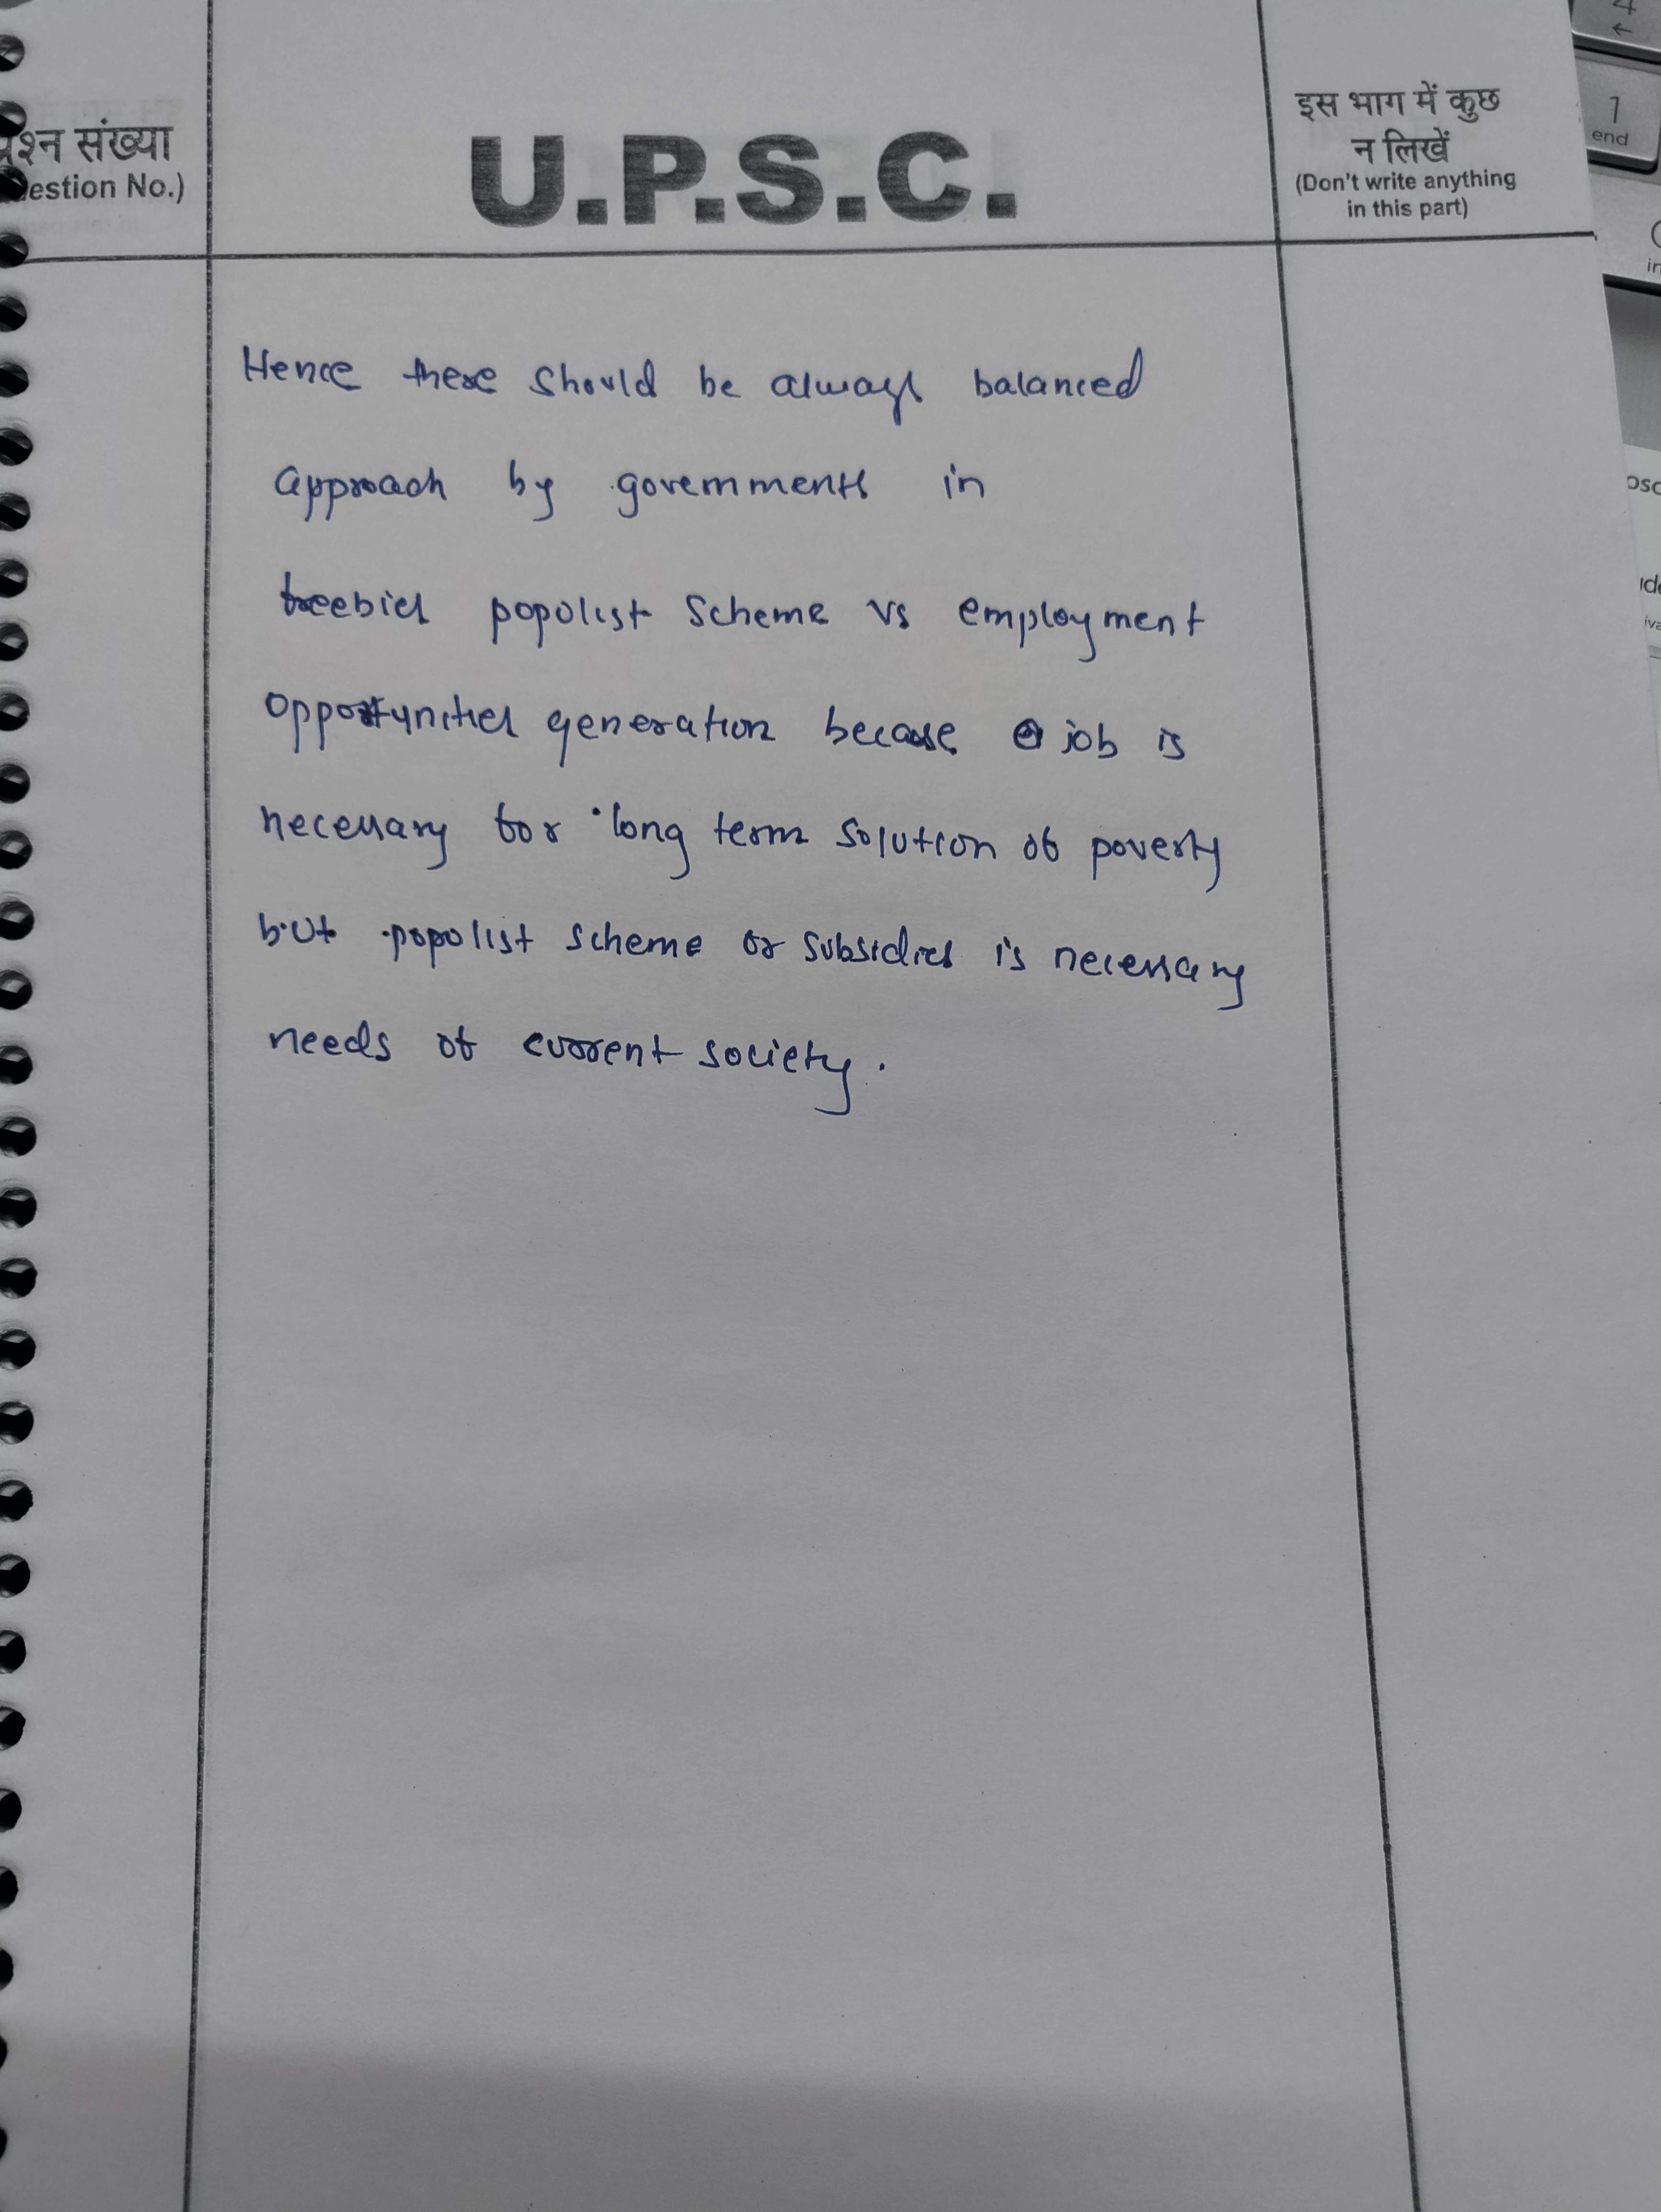 प्रश्न संख्या
estion No.)
U.P.S.C.
इस भाग में कुछ
न लिखें
(Don't write anything
in this part)
Hence there should be always balanced
approach by governments in
freebies popolist scheme vs employment
opportunities generation because job is
necessary for long term solution of poverty
but popolist scheme or subsidies is necessary
needs of current society.
4
←
1
end